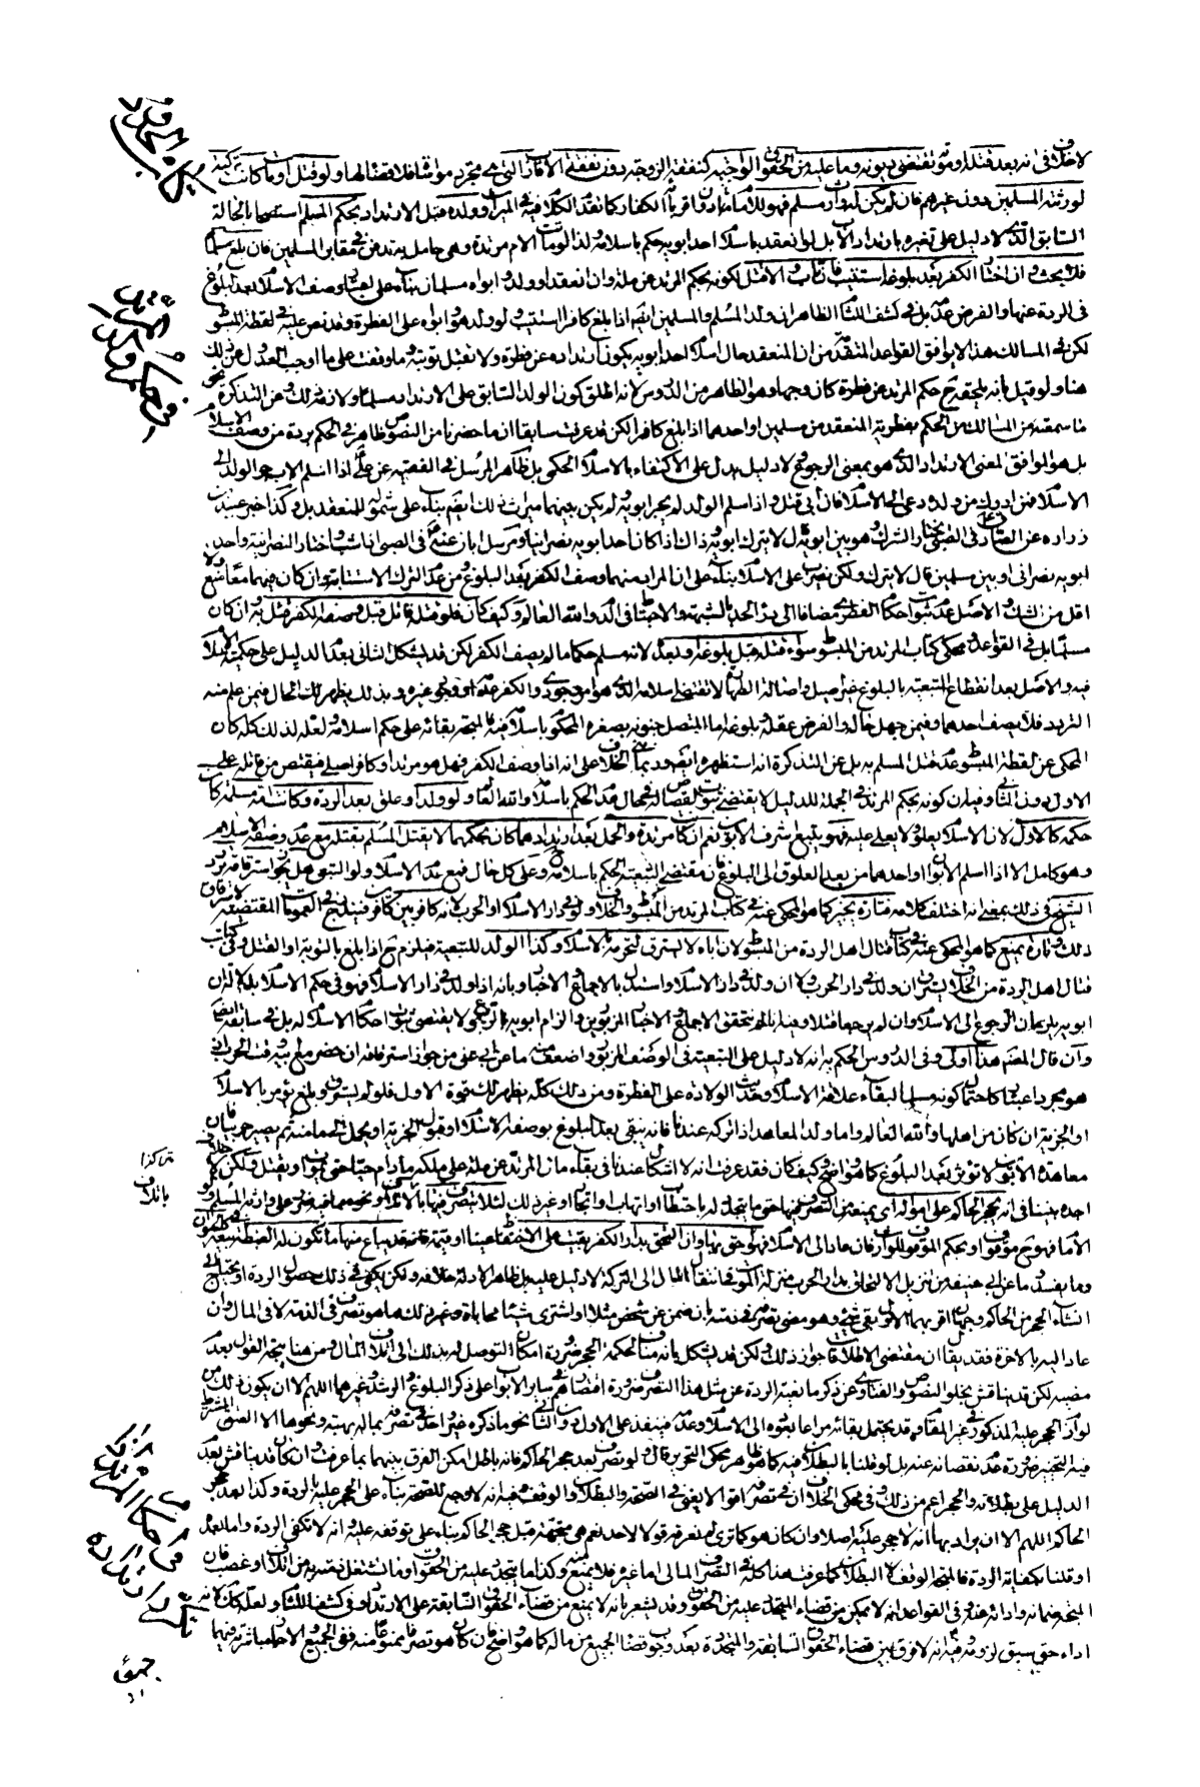 لا خلاف في انه بعد قتله او موته تقضى ديونه وما عليه من الحقوق الواجبة كنفقة الزوجة دون نفقة الاقارب التي هي مجرد مواساة فلا قضاء لها ولو قتل او مات كانت تركته
لورثته المسلمين دون غيرهم فان لم يكن له وارث مسلم فهو للامام عندنا وان قارب الكفار كما تقدم الكلام فيه في الميراث وولده قبل الارتداد بحكم المسلم استصحابا لحالة
السابق الذي لا دليل على تغيره بارتداد الاب بل لو انعقد باسلام احد ابويه حكم باسلامه ولذا لو ماتت الام مرتدة وهي حامل به تدفن في مقابر المسلمين فان بلغ مسلما
فلا بحث وان اختار الكفر بعد بلوغه استتيب فان تاب والا قتل لكونه بحكم المرتد عن ملة وان انعقد او ولد وابواه مسلمان بناء على اعتبار وصف الاسلام بعد البلوغ
في الردة عنها والفرض عدمه بل في كشف اللثام الظاهر ان ولد المسلم والمسلمين ايضا اذا بلغ كافرا استتيب ولو ولد هو وابواه على الفطرة وقد نص عليه في لقطة المبسوط
لكن في المسالك هذا لا يوافق القواعد المتقدمة من ان المنعقد حال اسلام احد ابويه يكون ارتداده عن فطرة ولا تقبل توبته وما وقفت على ما اوجب العدول عن ذلك
هنا ولو قيل بانه يلحقه حينئذ حكم المرتد عن فطرة كان وجها وهو الظاهر من الدروس لانه اطلق كون الولد السابق على الارتداد مسلما ولازم ذلك وعن التذكرة نحو
ما سمعته من المسالك من الحكم بفطرية المنعقد من مسلمين او احدهما اذا بلغ كافرا لكن قد عرفت سابقا ان ما حضرنا من النصوص ظاهر في الحكم بردة من وصف الاسلام
بل هو الموافق لمعنى الارتداد الذي هو بمعنى الرجوع ولا دليل يدل على الاكتفاء بالاسلام الحكمي بل ظاهر المرسل في الفقيه عن علي اذا اسلم الاب جر الولد الى
الاسلام فمن ادرك من ولده دعى الى الاسلام فان ابى قتل واذا اسلم الولد لم يجر ابويه ولم يكن بينهما ميراث ذلك ايضا بناء على شموله للمنعقد بل وكذا خبر عبيد بن
زرارة عن الصادق في الصبي يختار الشرك وهو بين ابويه قال لا يترك وذاك اذا كان احد ابويه نصرانيا ومرسل ابان عنه في الصبي اذا شب واختار النصرانية واحد
ابويه نصراني او بين مسلمين قال لا يترك ولكن يضرب على الاسلام بناء على ان المراد منهما وصف الكفر بعد البلوغ ومن عدم الترك الاستتابة وان كان فيهما معا منع ولا
اقل من الشك والاصل عدم ثبوت احكام الفطري مضافا الى درء الحد بالشبهة والاحتياط في الدم والله العالم وكيف كان فلو قتله قاتل قبل وصفه الكفر قتل به وان كان
مستقبل في القواعد ومحكي كتاب المرتد من المبسوط سواء قتله قبل بلوغه او بعده لانه مسلم حكما ما لم يصف الكفر لكن قد يشكل الثاني بعدم الدليل على حكمية الاسلام
فيه والاصل بعد انقطاع التبعية بالبلوغ غير اصيل واصالة الطهارة لا تقتضي اسلامه الذي هو امر وجودي والكفر عدمه او وجودي غيره وبذلك يظهر لك الحال فيمن علم منه
التردد فلا يصف احدهما وفيمن جهل حاله والفرض عقله في بلوغه اما المتصل جنونه بصغره المحكوم باسلامه فيه فالمتجه بقائه على حكم اسلامه ولعله لذلك كله كان
المحكي عن لقطة المبسوط عدم قتل المسلم به بل عن التذكرة انه استظهره ايضا وربما بنى الخلاف على انه اذا وصف الكفر فهل هو مرتد او كافر اصلي فيقتص من قاتله على
الاول دون الثاني وفيه ان كونه بحكم المرتد في الجملة للدليل لا يقتضي ثبوت القصاص له في حال عدم الحكم باسلامه والله العالم ولو ولد او علق بعد الردة وكانت امه مسلمة كان
حكمه كالاول لان الاسلام يعلو ولا يعلى عليه فهو يتبع اشرف الابوين نعم ان كانت مرتدة والحمل بعد ارتدادهما كان بحكمهما لا يقتل المسلم بقتله مع عدم وصفه الاسلام
وهو كامل الا اذا اسلم الابوان او احدهما من بعد العلوق الى البلوغ فان مقتضى التبعية الحكم باسلامه حينئذ وعلى كل حال فمع عدم الاسلام ولو التبعي هل يجوز استرقاقه تردد
الشيخ في ذلك بمعنى انه اختلف كلامه فتارة يجيز كما هو المحكي عنه في كتاب المرتد من المبسوط والخلاف ولو في دار الاسلام او الحرب لانه كافر بين كافرين فيندرج في العمومات المقتضية لاسترقاق
ذلك وتارة يمنع كما هو المحكي عنه في كتاب قتال اهل الردة من المبسوط لان اباه لا يسترق لتحرمه بالاسلام وكذا الولد للتبعية فيلزم حينئذ اذا بلغ بالتوبة او القتل وفي كتاب
قتال اهل الردة من الخلاف يسترق ان ولد في دار الحرب ولا ان ولد في دار الاسلام واستدل بالاجماع والاخبار وبانه اذا ولد في دار الاسلام فهو في حكم الاسلام بدلالة ان
ابويه يلزمان الرجوع الى الاسلام وان لم يرجعا قتلا وفيه انا لم نتحقق الاجماع والاخبار المزبورين والزام ابويه بالرجوع لا يقتضي ثبوت احكام الاسلام له بل في سابقه ايضا
وان قال المصنف هذا اولى وفي الدروس الحكم به انه لا دليل على التبعية في الوصف المزبور واضعف منه ما عن ابي علي من جواز استرقاقه ان حضر مع ابويه وقت الحرب اذ
هو مجرد اعتبار كاحتمال كونه مسلما لبقاء علاقة الاسلام وحديث الولادة على الفطرة ومن ذلك كله يظهر لك قوة الاول فلو لم يسترق وبلغ يؤمر بالاسلام
او الجزية ان كان من اهلها والله العالم واما ولد المعاهد اذا تركه عندنا فانه يبقى بعد البلوغ بوصفه الاسلام او قبول الجزية او يحمل الى مامنه ثم يصير حربيا فان
معاهدة الابوين لا تؤثر بعد البلوغ كما هو واضح وكيف كان فقد عرفت انه لا اشكال عندنا في بقاء مال المرتد عن ملة على ملكه ما دام حيا حتى يموت او يقتل ولكن لا خلاف
اجده بيننا في انه يحجر الحاكم على امواله اي يمنعه من التصرف فيها حتى ما يتجدد له باحتطاب او اتهاب او اتجار او غير ذلك لئلا يتصرف فيها بالاتلاف ونحوه مما فيه ضرر على وارثه المسلم ولو
الامام فهو حينئذ موقوف او بحكم الموقوف للوارث فان عاد الى الاسلام فهو احق بها وان التحق بدار الكفر بقيت على الاحتفاظ عينا او قيمة فانه قد يباع منها ما تكون له الغبطة ببيعه
وما يفسد وما عن ابي حنيفة من تنزيل الالتحاق بدار الحرب منزلة الموت في انتقال المال الى التركة لا دليل عليه بل ظاهر الادلة خلافه ولكن يكفي في ذلك حصول الردة او يحتاج الى
انشاء الحجر من الحاكم وجهان اقربهما الاول بقي شيء وهو مضي تصرفه في ذمته بان ضمن عن شخص مثلا او اشترى شيئا محاباة وغير ذلك مما هو تصرف في الذمة لا في المال وان
عاد اليه بالاخرة فقد يقال ان مقتضى الاطلاقات جواز ذلك ولكن قد يشكل بانه مناف لحكمة الحجر ضرورة امكان التوصل به بذلك الى اتلاف المال ومن هنا يتجه القول بعدم
مضيه لكن قد يناقش بخلو النصوص والفتاوى عن ذكر مانعية الردة عن مثل هذا التصرف ضرورة اقتصارهم في سائر الابواب على ذكر البلوغ والرشد وغيرهما اللهم الا ان يكون ذلك من
لوازم الحجر عليه المذكور في غير المقام وقد يحتمل بقائه مراعا بعوده الى الاسلام وعدمه فينفذ على الاول دون الثاني نحو ما ذكره غير واحد في تصرفه بماله بهبته ونحوها الا العتق المشترط
فيه التنجيز ضرورة عدم نقصانه عنه بل لو قلنا بالبطلان فيه كما هو ظاهر محكي التحرير قال ولو تصرف بعد حجر الحاكم فانه باطل امكن الفرق بينهما بما عرفت وان كان قد يناقش بعدم
الدليل على بطلانه والحجر اعم من ذلك وفي محكي الخلاف ان في تصرفه اقوالا يعني في الصحة والبطلان والوقف وفيه انه لا وجه للصحة بناء على الحجر عليه بالردة وكذا بعد حجر
الحاكم اللهم الا ان يراد بها انه لا حجر عليه اصلا وان كان هو كما ترى لم نعرفه قولا لاحد نعم هي متجهة قبل حجر الحاكم بناء على توقفه عليه وانه لا تكفي الردة واما بعده
او قلنا بكفاية الردة فالمتجه الوقف لا البطلان كما عرفت هذا كله في التصرف المالي اما غيره فلا يمنع منه وكذا ما يتجدد عليه من الحقوق او ما اشتغلت ذمته به من اتلاف او غصب فان
المتجه ضمانه وادائه عنه وفي القواعد انه لا تمكين من قضاء المتجدد عليه من الحقوق وقد يشعر بانه لا يمنع من قضاء الحقوق السابقة على الارتداد وفي كشف اللثام ولعله كذلك لانه
اداء حق سبق لزومه وفيه انه لا فرق بين قضاء الحقوق السابقة والمتجددة بعد وجوب قضاء الجميع من ماله كما هو واضح فان كان هو تصرفا ممنوعا منه ففي الجميع الا حاجب مباشرته فيهما
كتاب الحدود
في حكم ولد المرتد
في احكام المرتد اذا تكرر ارتداده